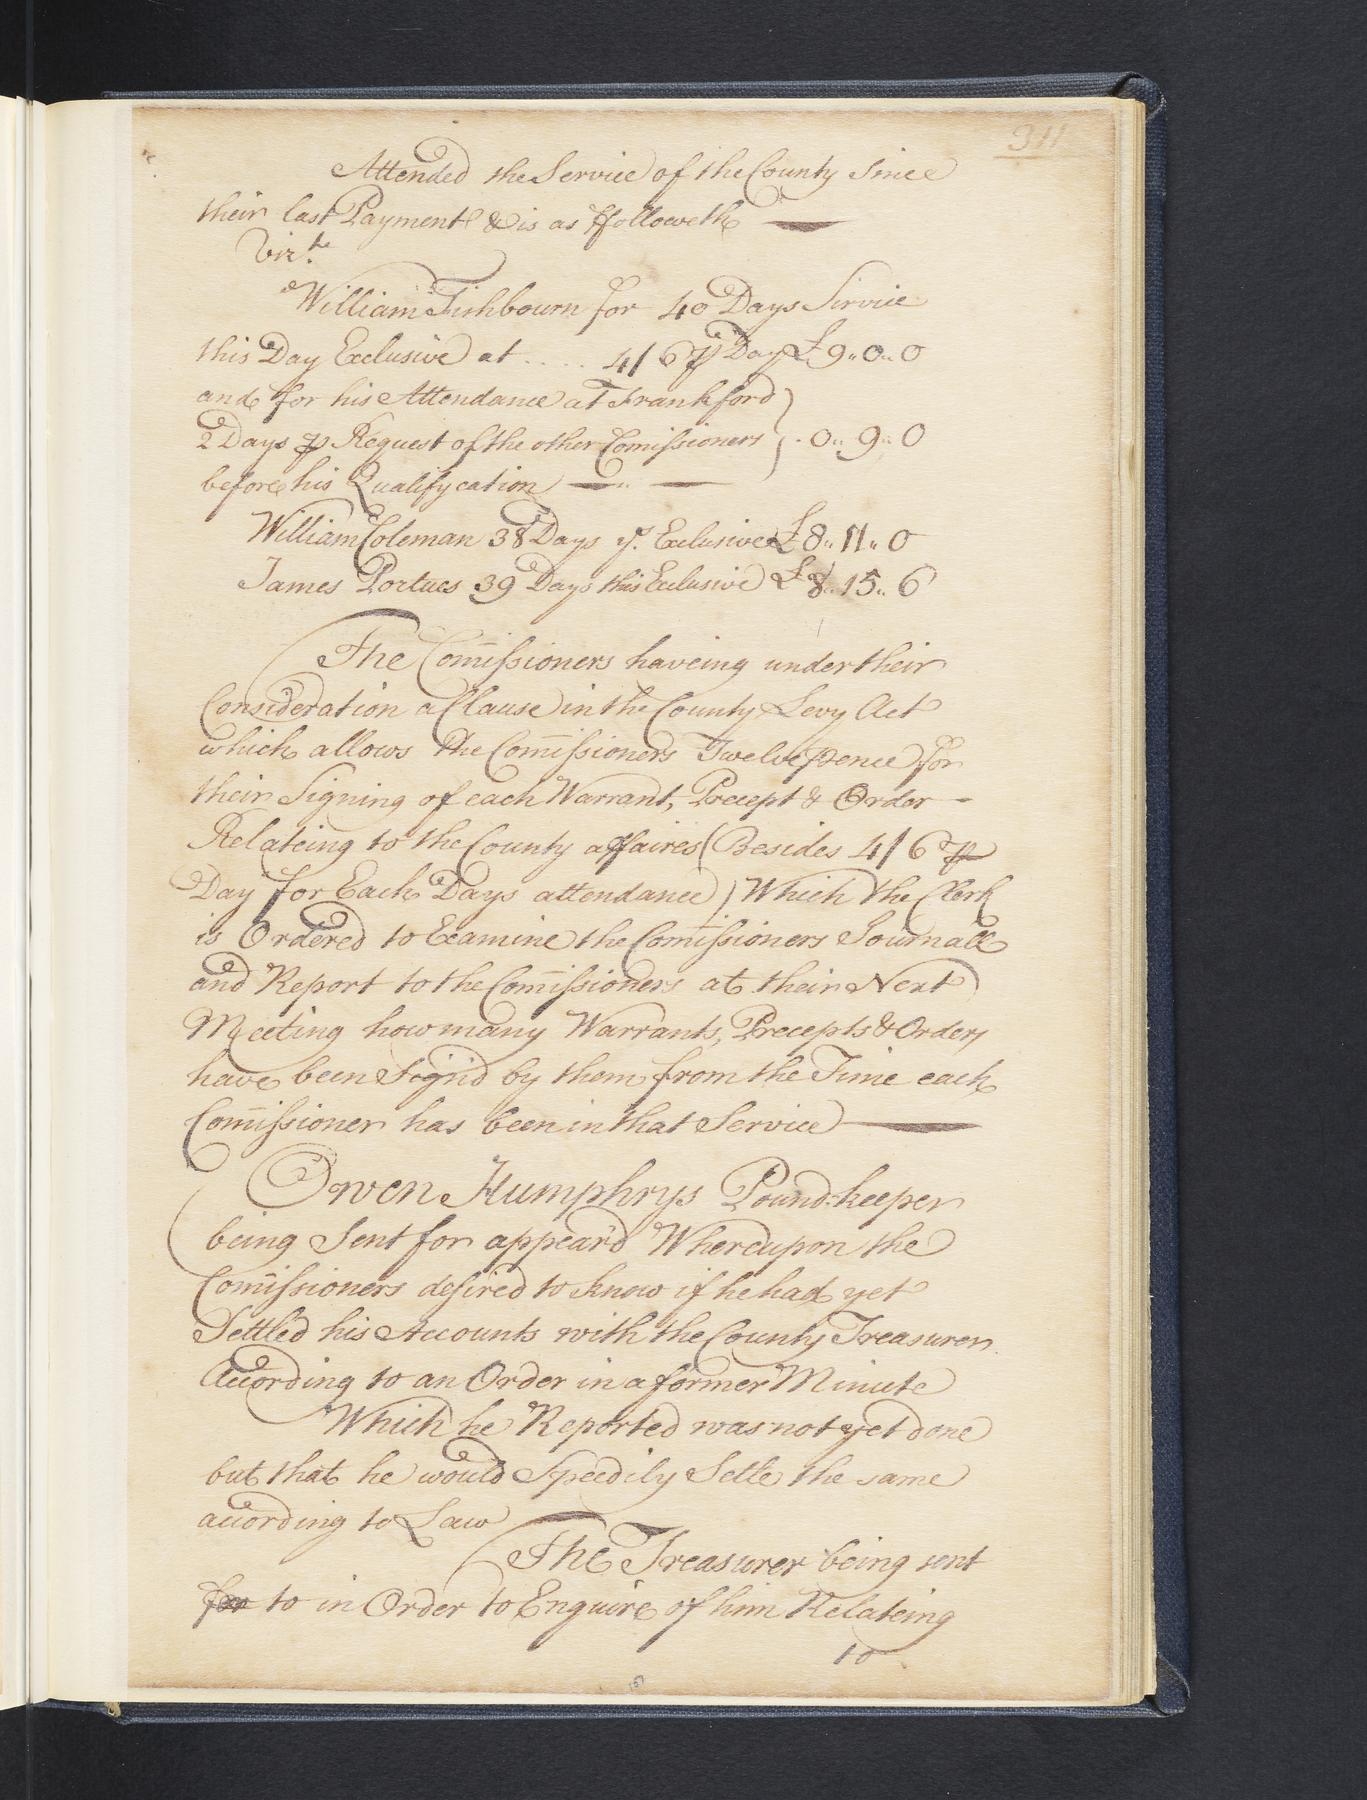 311
Attended the Service of the County Since
their last Payment & is as ffolloweth
Vizt.
William Fishbourn for 40 Days Service
this Day Exclusive at .... 4/6 ⅌ Day £9..0..0
and for his Attendance at Frankford
2 Days ⅌ Request of the other Com̄issioners } .0..9..0
before his Qualifycation
William Coleman 38 Days yt. Exclusive £8..11..0
James Portues 39 Days this Exclusive £8..15..6
The Com̄issioners haveing under their
Consideration a Clause in the County Levy Act
which allows the Com̄issioners Twelve pence for
their Signing of each Warrant, Precept & Order
Relateing to the County affaires (Besides 4/6 ⅌
Day for Each Days attendance) Which the Clerk
is Ordered to Examine the Com̄issioners Journall
and Report to the Com̄issioners at their Next
Meeting how many Warrants, Precepts & Orders
have been Sign'd by them from the Time each
Com̄issioner has been in that Service
Owen Humphrys Pound-keeper
being Sent for appear'd Whereupon the
Com̄issioners desired to know if he had yet
Settled his Accounts with the County Treasurer.
Acording to an Order in a former Minute
Which he Reported was not yet done
but that he would Speedily Setle the same
acording to Law
The Treasurer being sent
for to in Order to Enquire of him Relateing
to